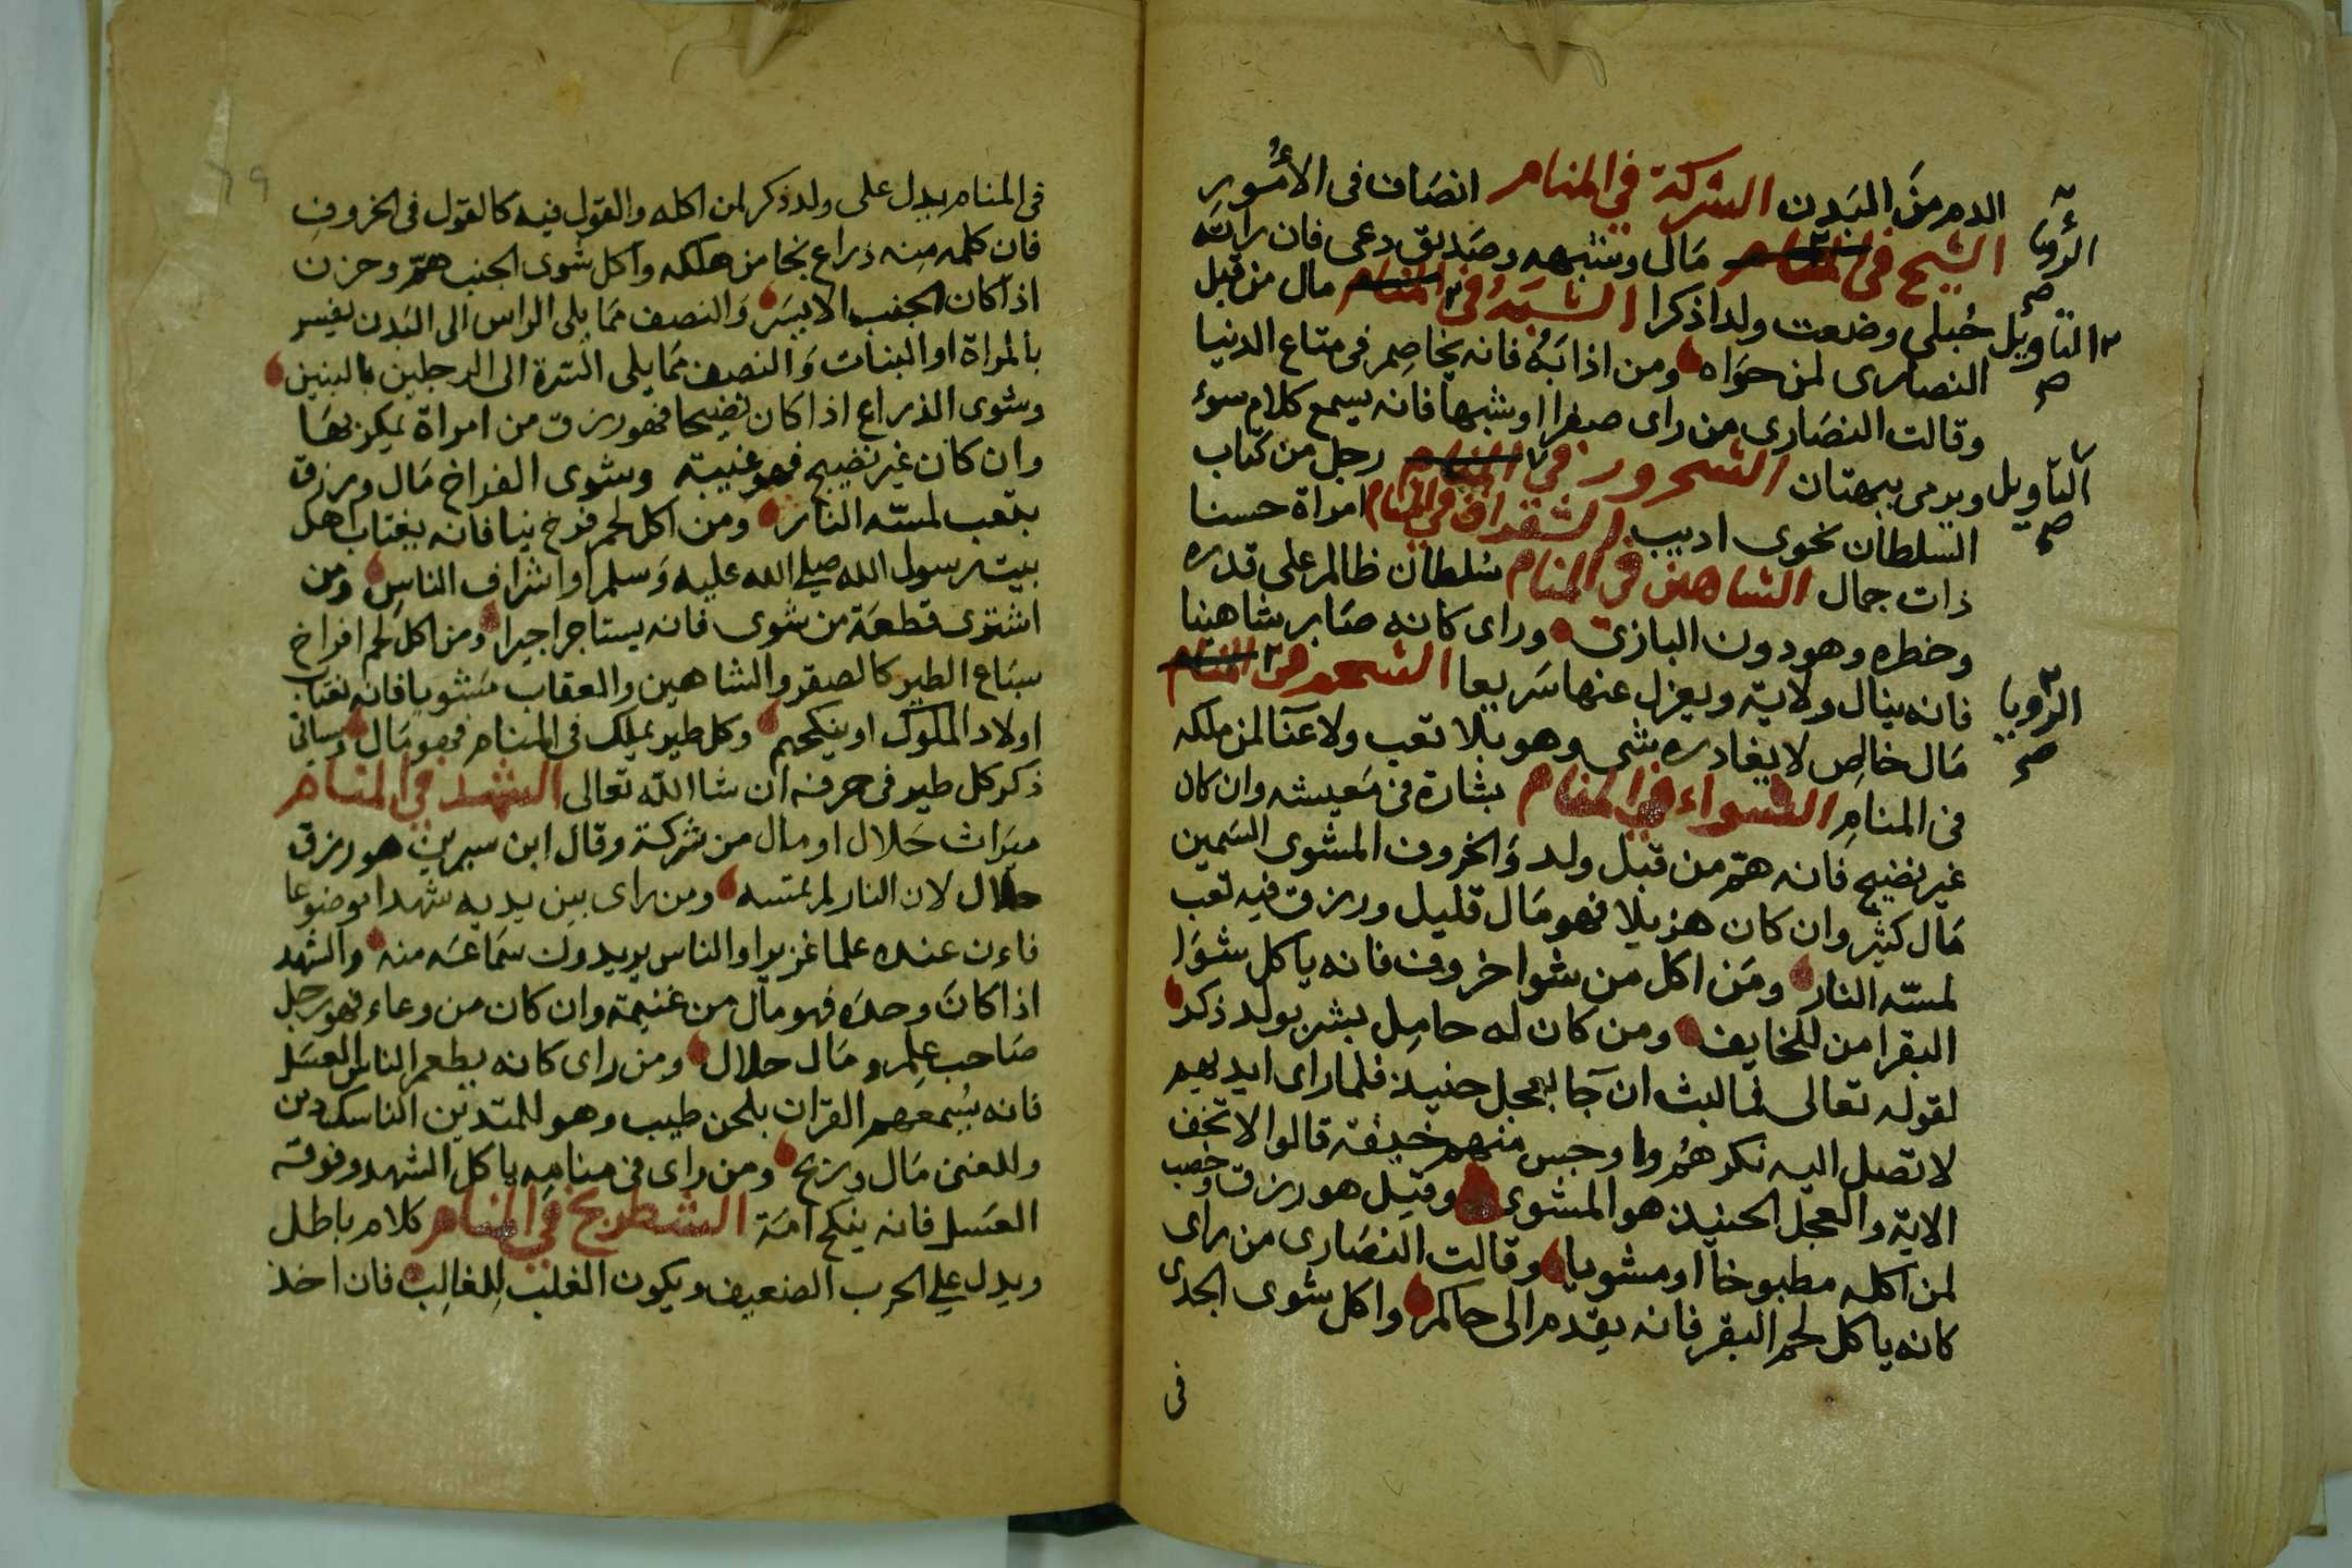 الدم من البدن الشركة في المنام انصاف في الامور
الشيح في المنام مال وشبهه وصديق دعي فان راته
الرؤيا صح
حبلى وضعت ولدا ذكرا الشبه في المنام مال من قبل
التاويل صح
النصارى لمن حواه ومن اذابه فانه يخاصم في متاع الدنيا
وقالت النصارى من راى صفرا او شبها فانه يسمع كلام سوء
ويرمى ببهتان الشحرور في المنام رجل من كتاب
التاويل صح
السلطان نحوى اديب الشقراق في المنام امراة حسنا
ذات جمال الشاهين في المنام سلطان ظالم على قدره
وخطره وهو دون البازى وراى كانه صار شاهينا
فانه ينال ولاية ويعزل عنها سريعا الشحم في المنام
الرؤيا صح
مال خالص لا يغادره شى وهو بلا تعب ولا عنا لمن ملكه
في المنام الشواء في المنام بشارة في معيشه وان كان
غير نضيج فانه هم من قبل ولد والخروف المشوى السمين
مال كثير وان كان هزيلا فهو مال قليل ورزق فيه تعب
لمسته النار ومن اكل من شوا خروف فانه ياكل شوا
البقر امن للخايف ومن كان له حامل بشر بولد ذكر
لقوله تعالى فما لبث ان جا بعجل حنيذ فلما راى ايديهم
لا تصل اليه نكرهم واوجس منهم خيفة قالوا لا تخف
الاية والعجل الحنيذ هو المشوى وقيل هو رزق وخصب
لمن اكله مطبوخا او مشويا وقالت النصارى من راى
كانه ياكل لحم البقر فانه يقدم الى حاكم واكل شوى الجدى
في
في المنام يدل على ولد ذكر لمن اكله والقول فيه كالقول في الخروف
فان كلمه منه ذراع نجا من هلكه واكل شوى الجنب هم وحزن
اذا كان الجنب الايسر والنصف مما يلى الراس الى البدن يفسر
بالمراة او البنات والنصف مما يلى السرة الى الرجلين بالبنين
وشوى الذراع اذا كان نضيجا فهو رزق من امراة يمكر بها
وان كان غير نضيج فهو غيبة وشوى الفراخ مال ورزق
بتعب لمسته النار ومن اكل لحم فرخ نيا فانه يغتاب اهل
بيت رسول الله صلى الله عليه وسلم او اشراف الناس ومن
اشترى قطعة من شوى فانه يستاجر اجيرا ومن اكل لحم افراخ
سباع الطير كالصقر والشاهين والعقاب مشويا فانه يغتاب
اولاد الملوك او ينكحهم وكل طير يملك في المنام فهو مال وسياتى
ذكر كل طير في حرفه ان شا الله تعالى الشهد في المنام
ميراث حلال او مال من شركة وقال ابن سيرين هو رزق
حلال لان النار لم تمسه ومن راى بين يديه شهدا موضوعا
فان عنده علما غزيرا والناس يريدون سماعه منه والشهد
اذا كان وحده فهو مال من غنيمة وان كان من وعاء فهو رجل
صاحب علم ومال حلال ومن راى كانه يطعم الناس العسل
فانه يسمعهم القران بلحن طيب وهو للمتدين الناسك دين
وللغنى مال وربح ومن راى في منامه ياكل الشهد وفوقه
العسل فانه ينكح امة الشطرنج في المنام كلام باطل
ويدل على الحرب الضعيف ويكون الغلب للغالب فان اخذ